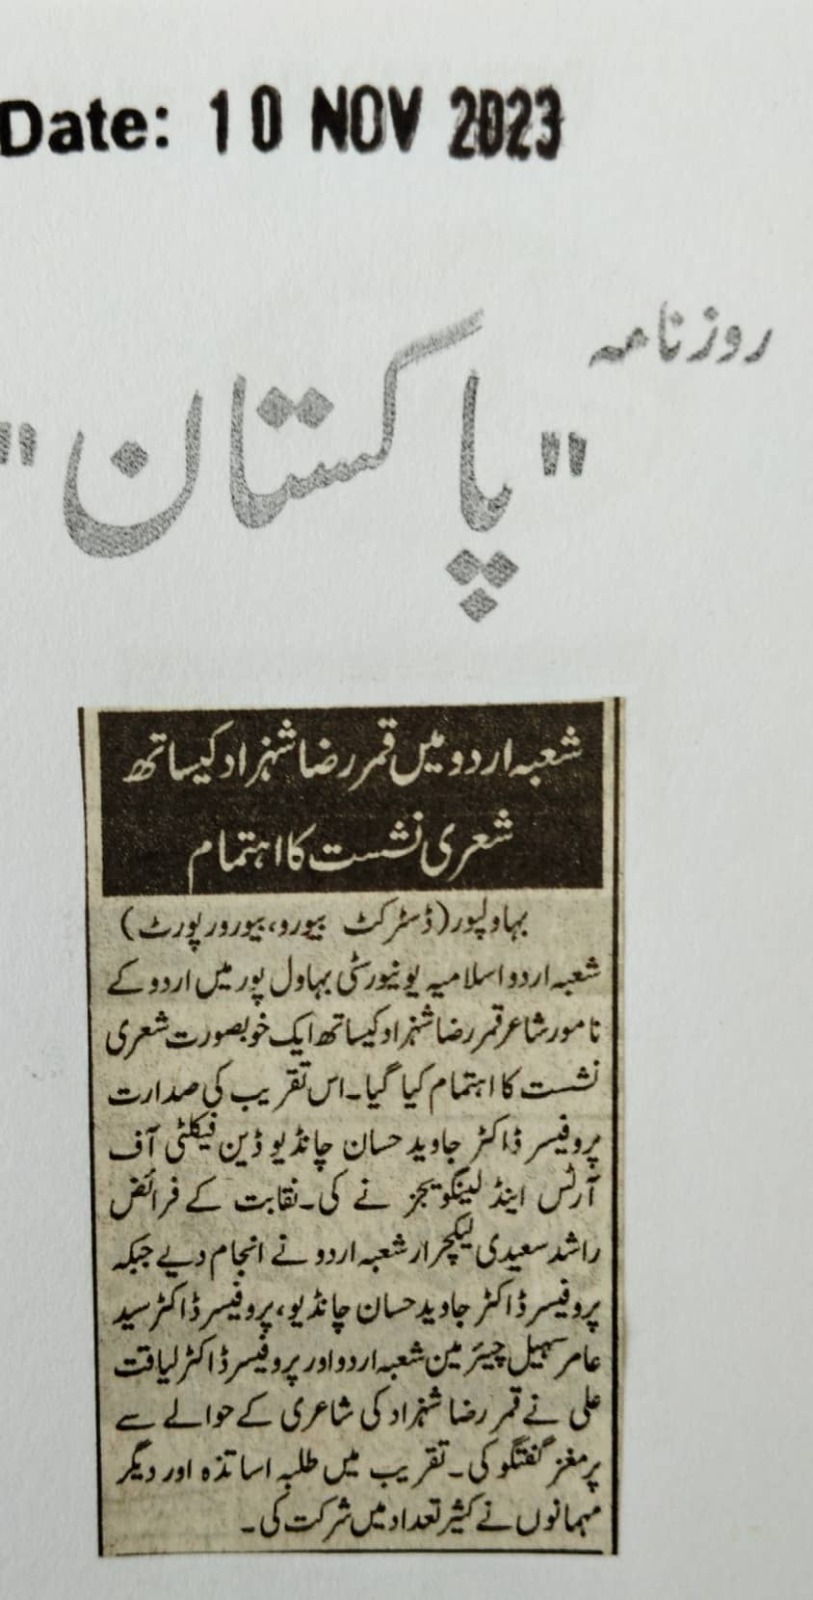 Date: 10 NOV 2023
روزنامہ
"پاکستان"
شعبہ اردو میں قمر رضا شہزاد کیساتھ
شعری نشست کا اہتمام
بہاولپور (ڈسٹرکٹ بیورو، بیورو رپورٹ)
شعبہ اردو اسلامیہ یونیورسٹی بہاول پور میں اردو کے
نامور شاعر قمر رضا شہزاد کیساتھ ایک خوبصورت شعری
نشست کا اہتمام کیا گیا۔ اس تقریب کی صدارت
پروفیسر ڈاکٹر جاوید حسان چانڈیو ڈین فیکلٹی آف
آرٹس اینڈ لینگویجز نے کی۔ نقابت کے فرائض
راشد سعیدی لیکچرار شعبہ اردو نے انجام دیے جبکہ
پروفیسر ڈاکٹر جاوید حسان چانڈیو، پروفیسر ڈاکٹر سید
عامر سہیل چیئرمین شعبہ اردو اور پروفیسر ڈاکٹر لیاقت
علی نے قمر رضا شہزاد کی شاعری کے حوالے سے
پرمغز گفتگو کی۔ تقریب میں طلبہ اساتذہ اور دیگر
مہمانوں نے کثیر تعداد میں شرکت کی۔